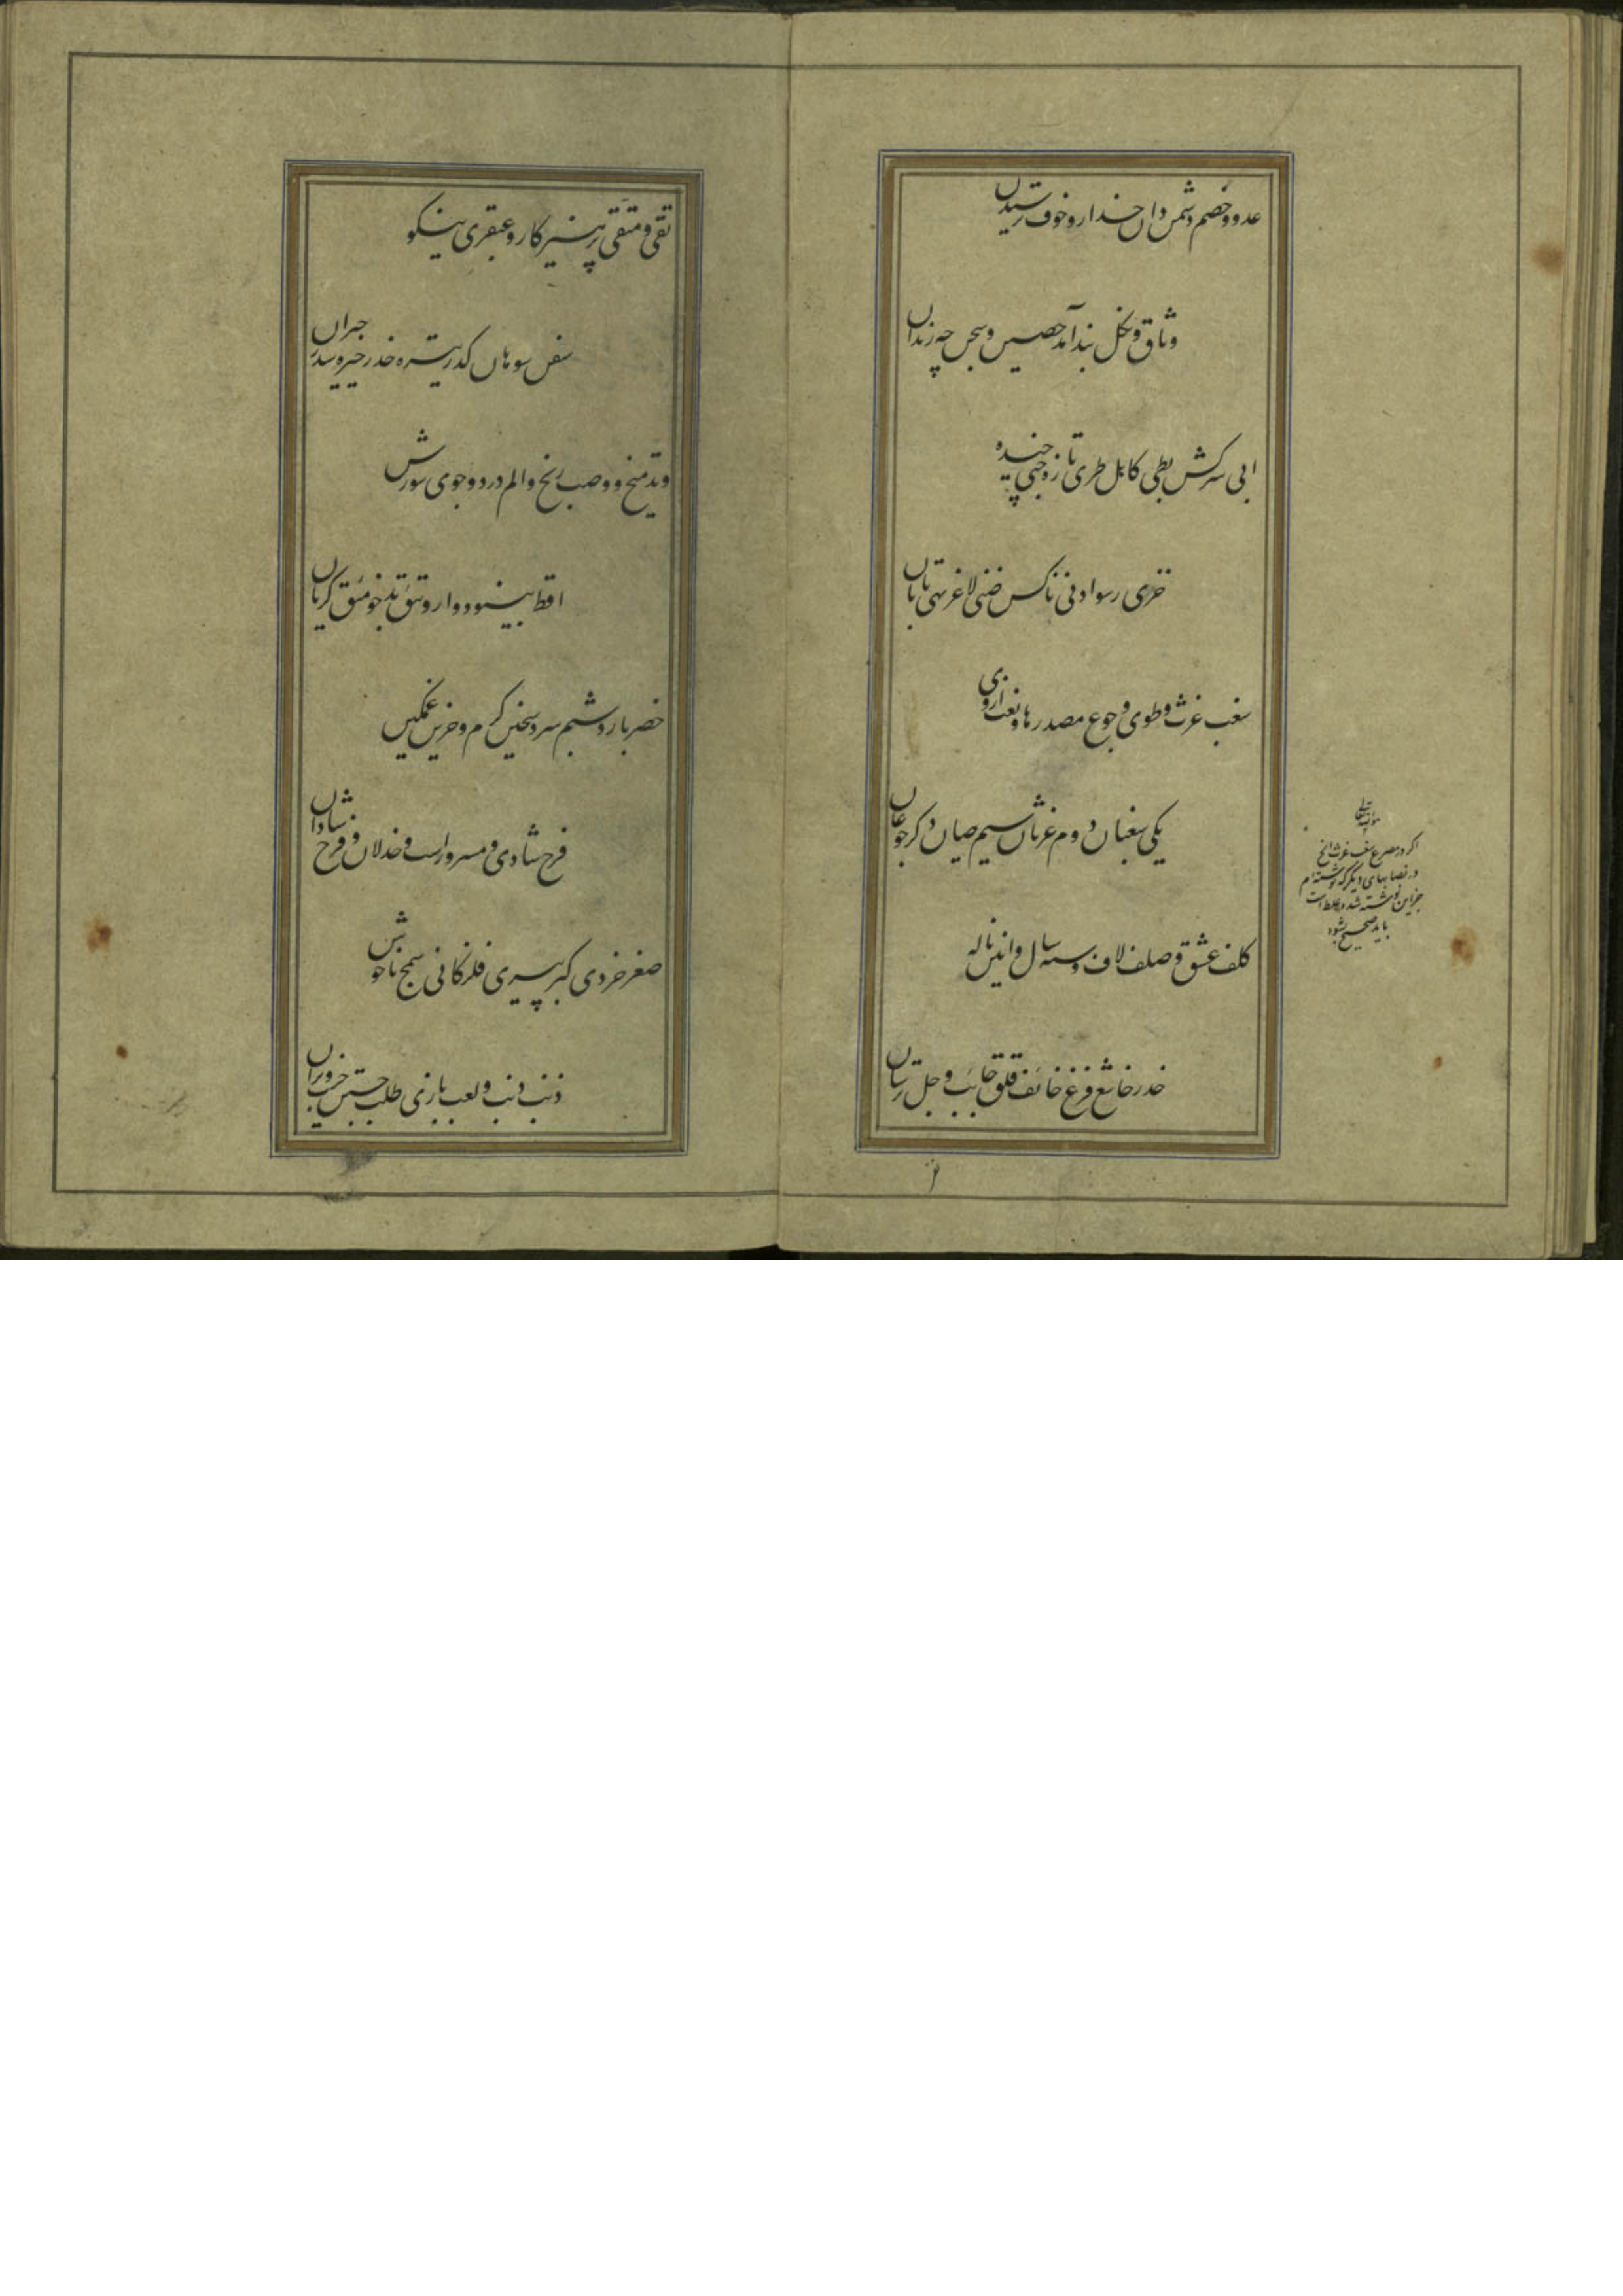 عدو و خصم دشمن دان حذار و خوف ترسیدن
وثاق و نکل بند آمد حصیر و سجن چه زندان
ابی سرکش بطی کاهل طری تازه جنی چیده
خزی رسوا دنی ناکس ضنی لاغر بهی تابان
سغب غرث و طوی و جوع مصدرها و نعت از وی
یکی سغبان دوم غرثان سیم طیان دگر جوعان
کلف عشق و صلف لاف و سنه سال و انین ناله
خدر خاشع فزع خائف قلق خائب وجل ترسان
تقی و متقی پرهیزکار و عبقری نیکو
سفن سوهان کدر تیره خدر خیره سدر حیران
وتد میخ و وصب رنج و الم درد و جوی سوزش
اقط بینو دوا دارو تئق بدخو مئق گریان
خصر بارد شبم سرد سخین گرم و حزین غمگین
فرح شادی و مسرور است و جذلان و فرح شادان
صغر خردی کبر پیری فلز کانی سمج ناخوش
ذنب دنب و لعب بازی طلب جستن خرب ویران
اگر در مصرع سغب غرث الخ
در نصابهای دیگر که نوشته‌ام
جز این نوشته شد غلط است
باید صحیح شود